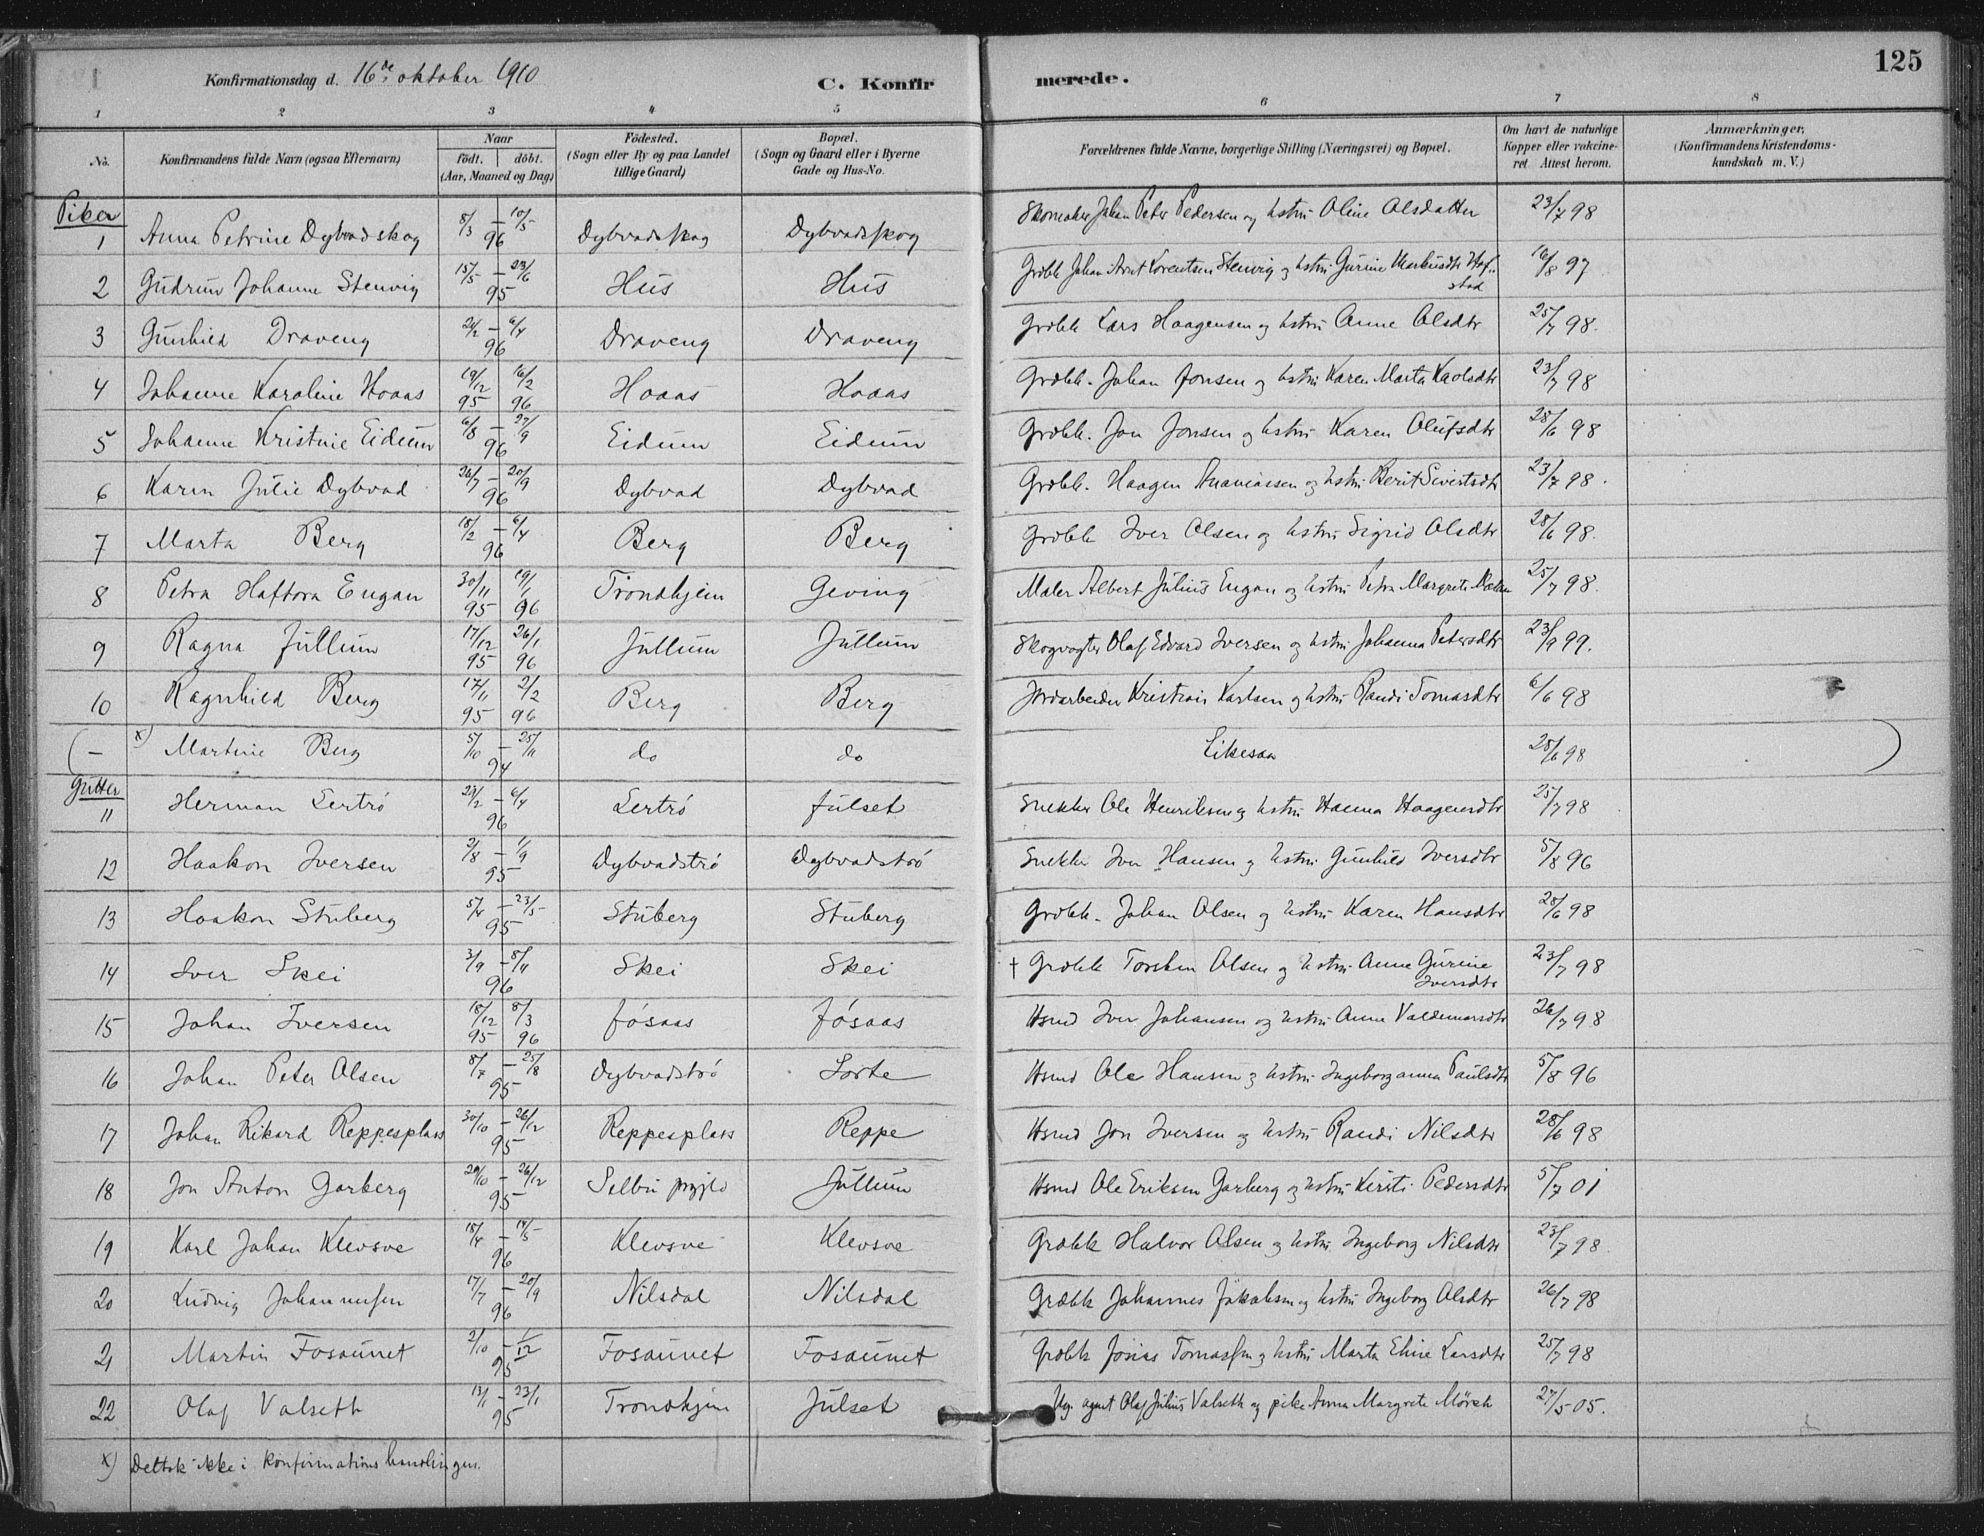 125
Konfirmationsdag d. 16de oktober 1910
C. Konfirmerede.
1 2 3 4 5 6 7 8
No.
Konfirmandens fulde Navn (ogsaa Efternavn)
Naar
født. døbt.
(Aar, Maaned og Dag)
Fødested.
(Sogn eller By og paa Landet
tillige Gaard)
Bopæl.
(Sogn og Gaard eller i Byerne
Gade og Hus-No.
Forældrenes fulde Navne, borgerlige Stilling (Næringsvei) og Bopæl.
Om havt de naturlige
Kopper eller vakcine-
ret Attest herom.
Anmærkninger,
(Konfirmandens Kristendoms-
kundskab m. V.)
Piker
1 Anna Petrine Dybvadskog 8/3 – 10/5 96 Dybvadskog Dybvadskog Skomaker Johan Peter Pedersen og hstru Oline Olsdatter 23/7 98
2 Gudrun Johanne Stenvig 15/5 – 23/6 95 Hus Hus Grdbk Johan Arnt Lorentsen Stenvig og hstru Gurine Markusdtr Hofstad 16/8 97
3 Gunhild Draveng 24/2 – 6/4 96 Draveng Draveng Grdbk Lars Haagensen og hstru Anne Olsdtr 25/7 98.
4 Johanne Karoline Hoaas 19/12 95 16/2 96 Hoaas Hoaas Grdbk. Johan Jonsen og hstru Karen Marta 23/7 98
5 Johanne Kristine Eidum 6/8 – 27/9 96 Eidum Eidum Grdbk. Jon Jonsen og hstru Karen Olufsdtr 28/6 98
6 Karen Julie Dybvad 26/7 – 20/9 96 Dybvad Dybvad Grdbk. Haagen Ananiassen og hstru Berit Sivertsdtr 23/7 98.
7 Marta Berg 18/2 – 6/4 96 Berg Berg Grdbk Iver Olsen og hstru Sigrid Olsdtr 28/6 98.
8 Petra Haftora Engan 30/11 95 19/1 96 Trondhjem Geving Maler Albert Julius Engan og hstru Petra Margrete 25/7 98.
9 Ragna Jullum 17/12 95 26/1 96 Jullum Jullum Skogvogter Olaf Edvard Iversen og hstru Johanna Petersdtr 23/9 99.
10 Ragnhild Berg 17/11 95 2/2 96 Berg Berg Jordarbeider Kristian Karlsen og hstru Randi Tomasdtr 6/6 98
( – x) Martine Berg 5/10 – 25/11 94 do do Likesaa 28/6 98 )
Gutter
11 Herman Lertrø 23/2 – 6/4 96 Lertrø Julset Snekker Ole Henriksen og hstru Hanna Haagensdtr 25/7 98
12 Haakon Iversen 2/8 – 1/9 95 Dybvadstrø Dybvadstrø Snekker Iver Hansen og hstru Gunhild Iversdtr 5/8 96
13 Haakon Stuberg 5/4 – 23/5 95 Stuberg Stuberg Grdbk. Johan Olsen og hstru Karen Hansdtr 28/6 98
14 Iver Skei 3/9 – 8/4 96 Skei Skei † Grdbk Torsten Olsen og hstru Anne Gurine Iversdtr 23/7 98
15 Johan Iversen 18/12 95 8/3 96 Fosaas Fosaas Hsmd Iver Johansen og hstru Anne Valdemarsdtr 26/7 98
16 Johan Peter Olsen 8/7 – 25/8 95 Dybvadstrø Sorte Hsmd Ole Hansen og hstru Ingeborganna Paulsdtr 5/8 96
17 Johan Rikard Reppesplass 30/10 – 26/12 95 Reppesplass Reppe Hsmd Jon Iversen og hstru Randi Nilsdtr 28/6 98
18 Jon Anton Garberg 20/10 – 26/12 95 Selbu prgjld Jullum Hsmd Ole Eriksen Garberg og hstru Kirsti Pedersdtr 5/7 01
19 Karl Johan Klevsve 15/4 – 14/5 96 Klevsve Klevsve Grdbk Halvor Olsen og hstru Ingeborg Nilsdtr 23/7 98.
20 Ludvig Johannessen 17/7 – 20/9 96 Nilsdal Nilsdal Grdbk Johannes Jakobsen og hstru Ingeborg Olsdtr 26/7 98
21 Martin Fosaunet 2/10 – 1/12 95 Fosaunet Fosaunet Grdbk Josias Tomassen og hstru Marta Eline Larsdtr 25/7 98
22 Olaf Valseth 13/1 – 23/1 95 Trondhjem Julset Ug. agent Olaf Julius Valseth og pike Anna Margrete Mørch 27/5 05.
x) Deltok ikke i konfirmationshandlingen.